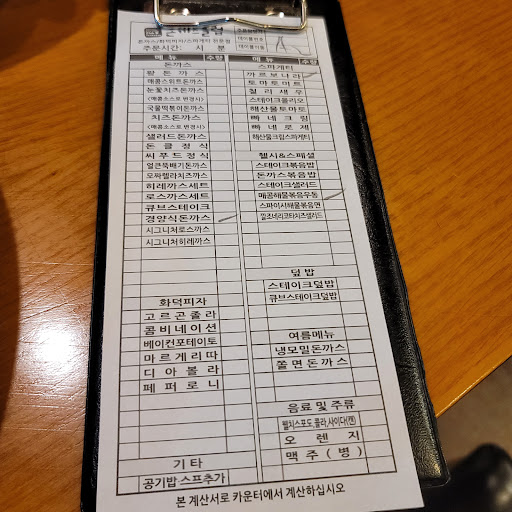 돈까스/화덕피자/스파게티 전문점
주문시간: 시 분
테이블번호
메뉴 수량
돈까스
왕돈까스
매콤스위트돈까스
눈꽃치즈돈까스
<매콤소스로 변경시>
국물떡볶이돈까스
치즈돈까스
<매콤소스로 변경시>
샐러드돈까스
돈클정식
씨푸드정식
얼큰뚝배기돈까스
모짜렐라치즈까스
히레까스세트
로스까스세트
큐브스테이크
경양식돈까스
시그니처로스까스
시그니처히레까스
화덕피자
고르곤졸라
콤비네이션
베이컨포테이토
마르게리따
디아볼라
페퍼로니
기타
공기밥·스프추가
메뉴 수량
스파게티
까르보나라
토마토미트
칠리새우
스테이크폴리오
해산물토마토
빠네크림
빠네로제
해산물크림스파게티
헬시&스페셜
스테이크볶음밥
돈까스볶음밥
스테이크샐러드
매콤해물볶음우동
스파이시해물볶음면
깔조네리코타치즈샐러드
덮밥
스테이크덮밥
큐브스테이크덮밥
여름메뉴
냉모밀돈까스
쫄면돈까스
음료 및 주류
펩시스포도,콜라,사이다(캔)
오렌지
맥주(병)
본 계산서로 카운터에서 계산하십시오